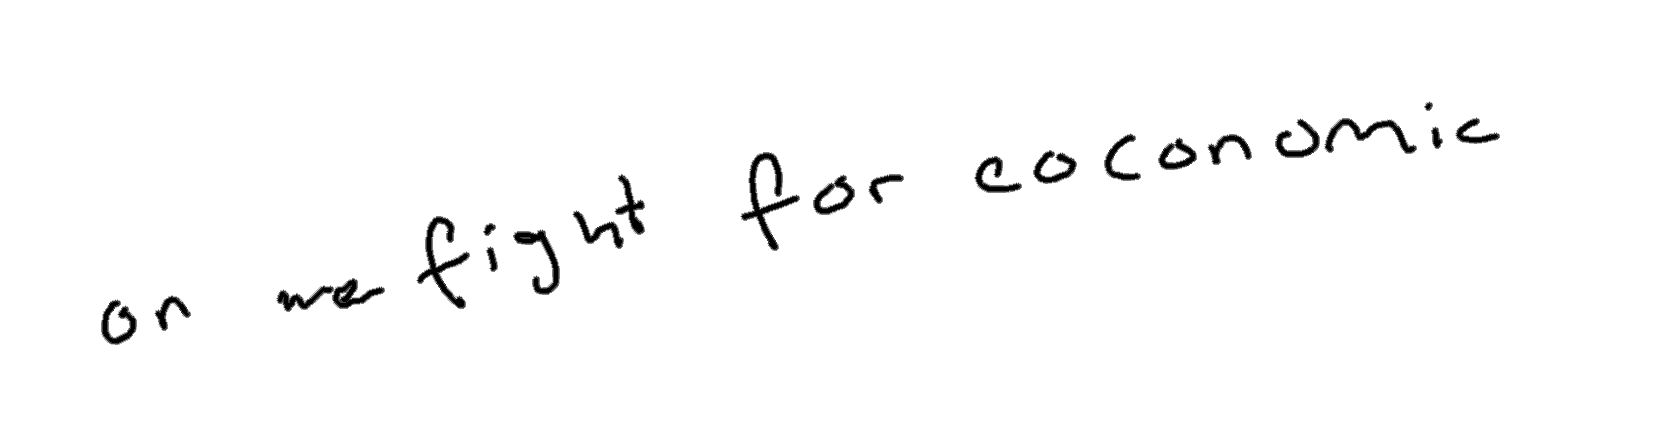 on me fight for eoconomic